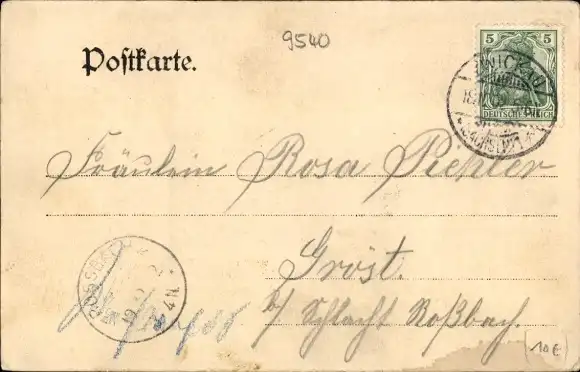 9540
Postkarte.
5
DEUTSCHES REICH
ZWICKAU
Fräulein Rosa Rehler
Gröst.
b/ Schlacht Roßbach.
10€